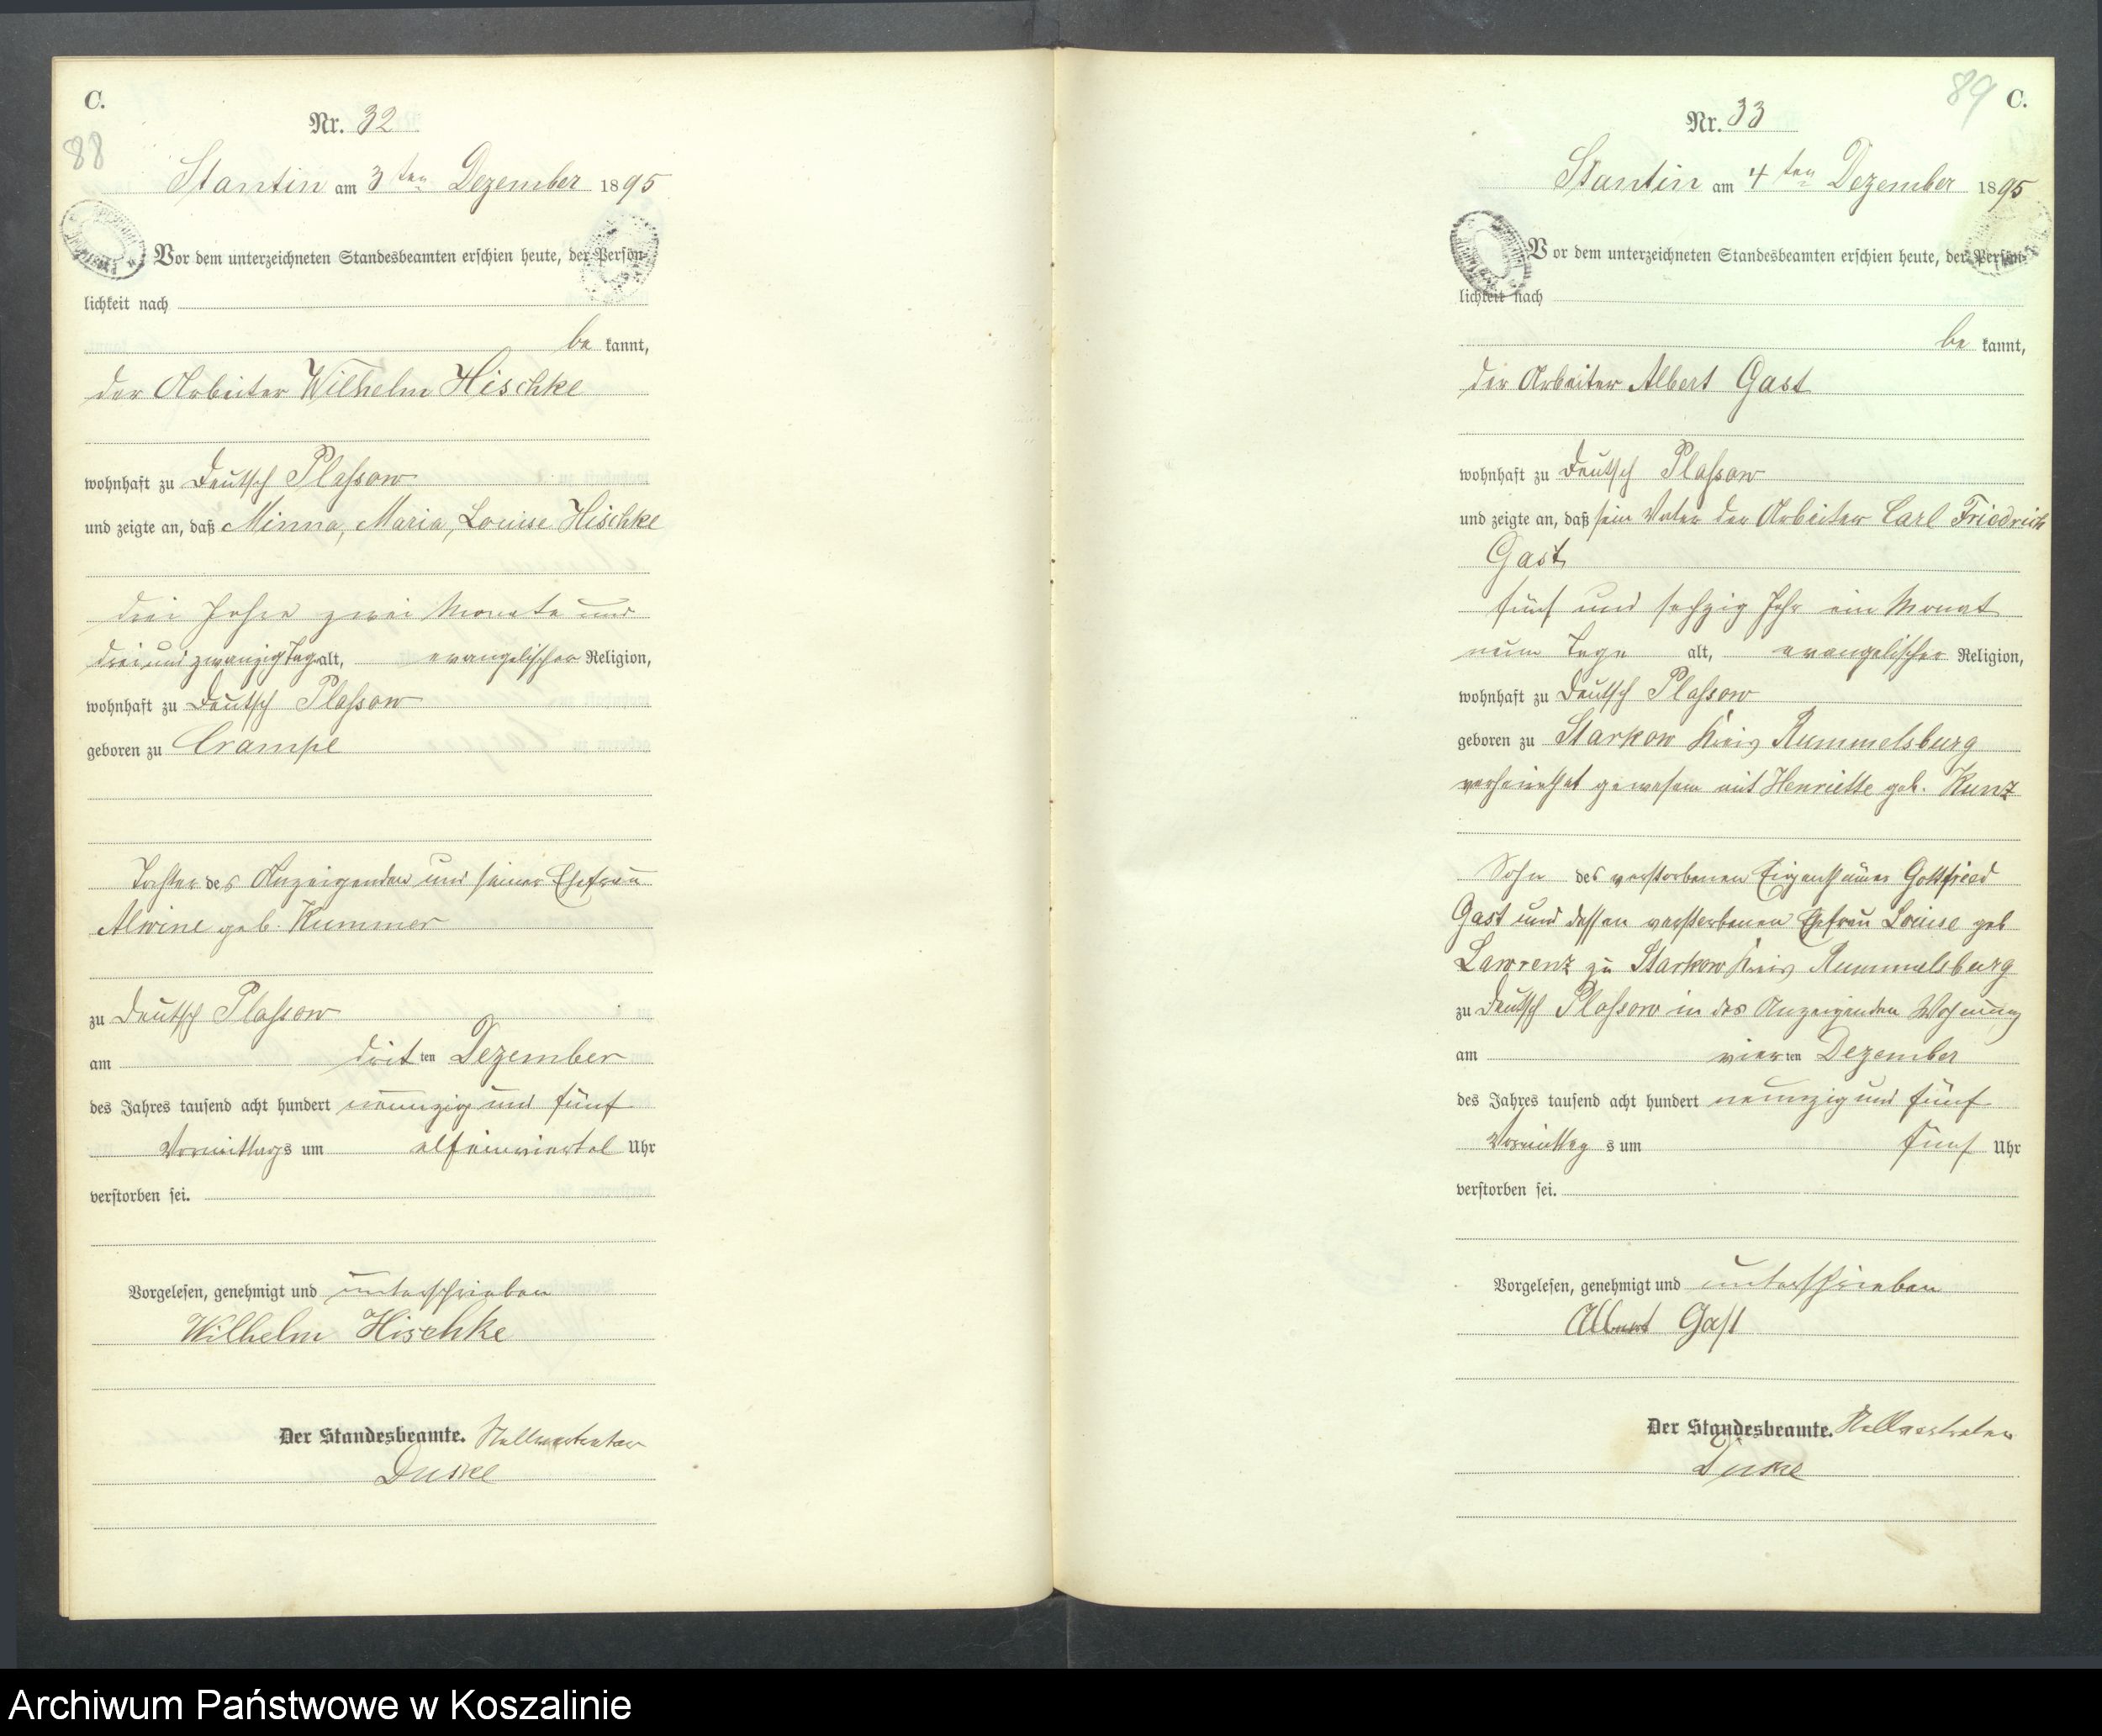 C.
88
Nr. 32
Stantin am 3ten Dezember 1895
Vor dem unterzeichneten Standesbeamten erschien heute, der Persön-
lichkeit nach
be kannt,
der Arbeiter Wilhelm Hischke
wohnhaft zu Deutsch Plassow
und zeigte an, daß Minna, Maria, Louise Hischke
drei Jahre zwei Monate und
drei und zwanzig Tage alt, evangelischer Religion,
wohnhaft zu Deutsch Plassow
geboren zu Crampe
Tochter des Anzeigenden und seiner Ehefrau
Alwine geb. Kummer
zu Deutsch Plassow
am dritten Dezember
des Jahres tausend acht hundert neunzig und fünf
Vormittags um elfeinviertel Uhr
verstorben sei.
Vorgelesen, genehmigt und unterschrieben
Wilhelm Hischke
Der Standesbeamte. Stellvertreter
Duske
89 C.
Nr. 33
Stantin am 4ten Dezember 1895
Vor dem unterzeichneten Standesbeamten erschien heute, der Persön-
lichkeit nach
be kannt,
der Arbeiter Albert Gast
wohnhaft zu Deutsch Plassow
und zeigte an, daß sein Vater der Arbeiter Carl Friedrich
Gast
fünf und sechzig Jahr ein Monat
neun Tage alt, evangelischer Religion,
wohnhaft zu Deutsch Plassow
geboren zu Starkow Kreis Rummelsburg
verheirathet gewesen mit Henriette geb. Kunz
Sohn des verstorbenen Eigenthümer Gottfried
Gast und dessen verstorbenen Ehefrau Louise geb
Lawrenz zu Starkow Kreis Rummelsburg
zu Deutsch Plassow in des Anzeigenden Wohnung
am vierten Dezember
des Jahres tausend acht hundert neunzig und fünf
Vormittags um fünf Uhr
verstorben sei.
Vorgelesen, genehmigt und unterschrieben
Albert Gast
Der Standesbeamte. Stellvertreter
Duske
Archiwum Państwowe w Koszalinie